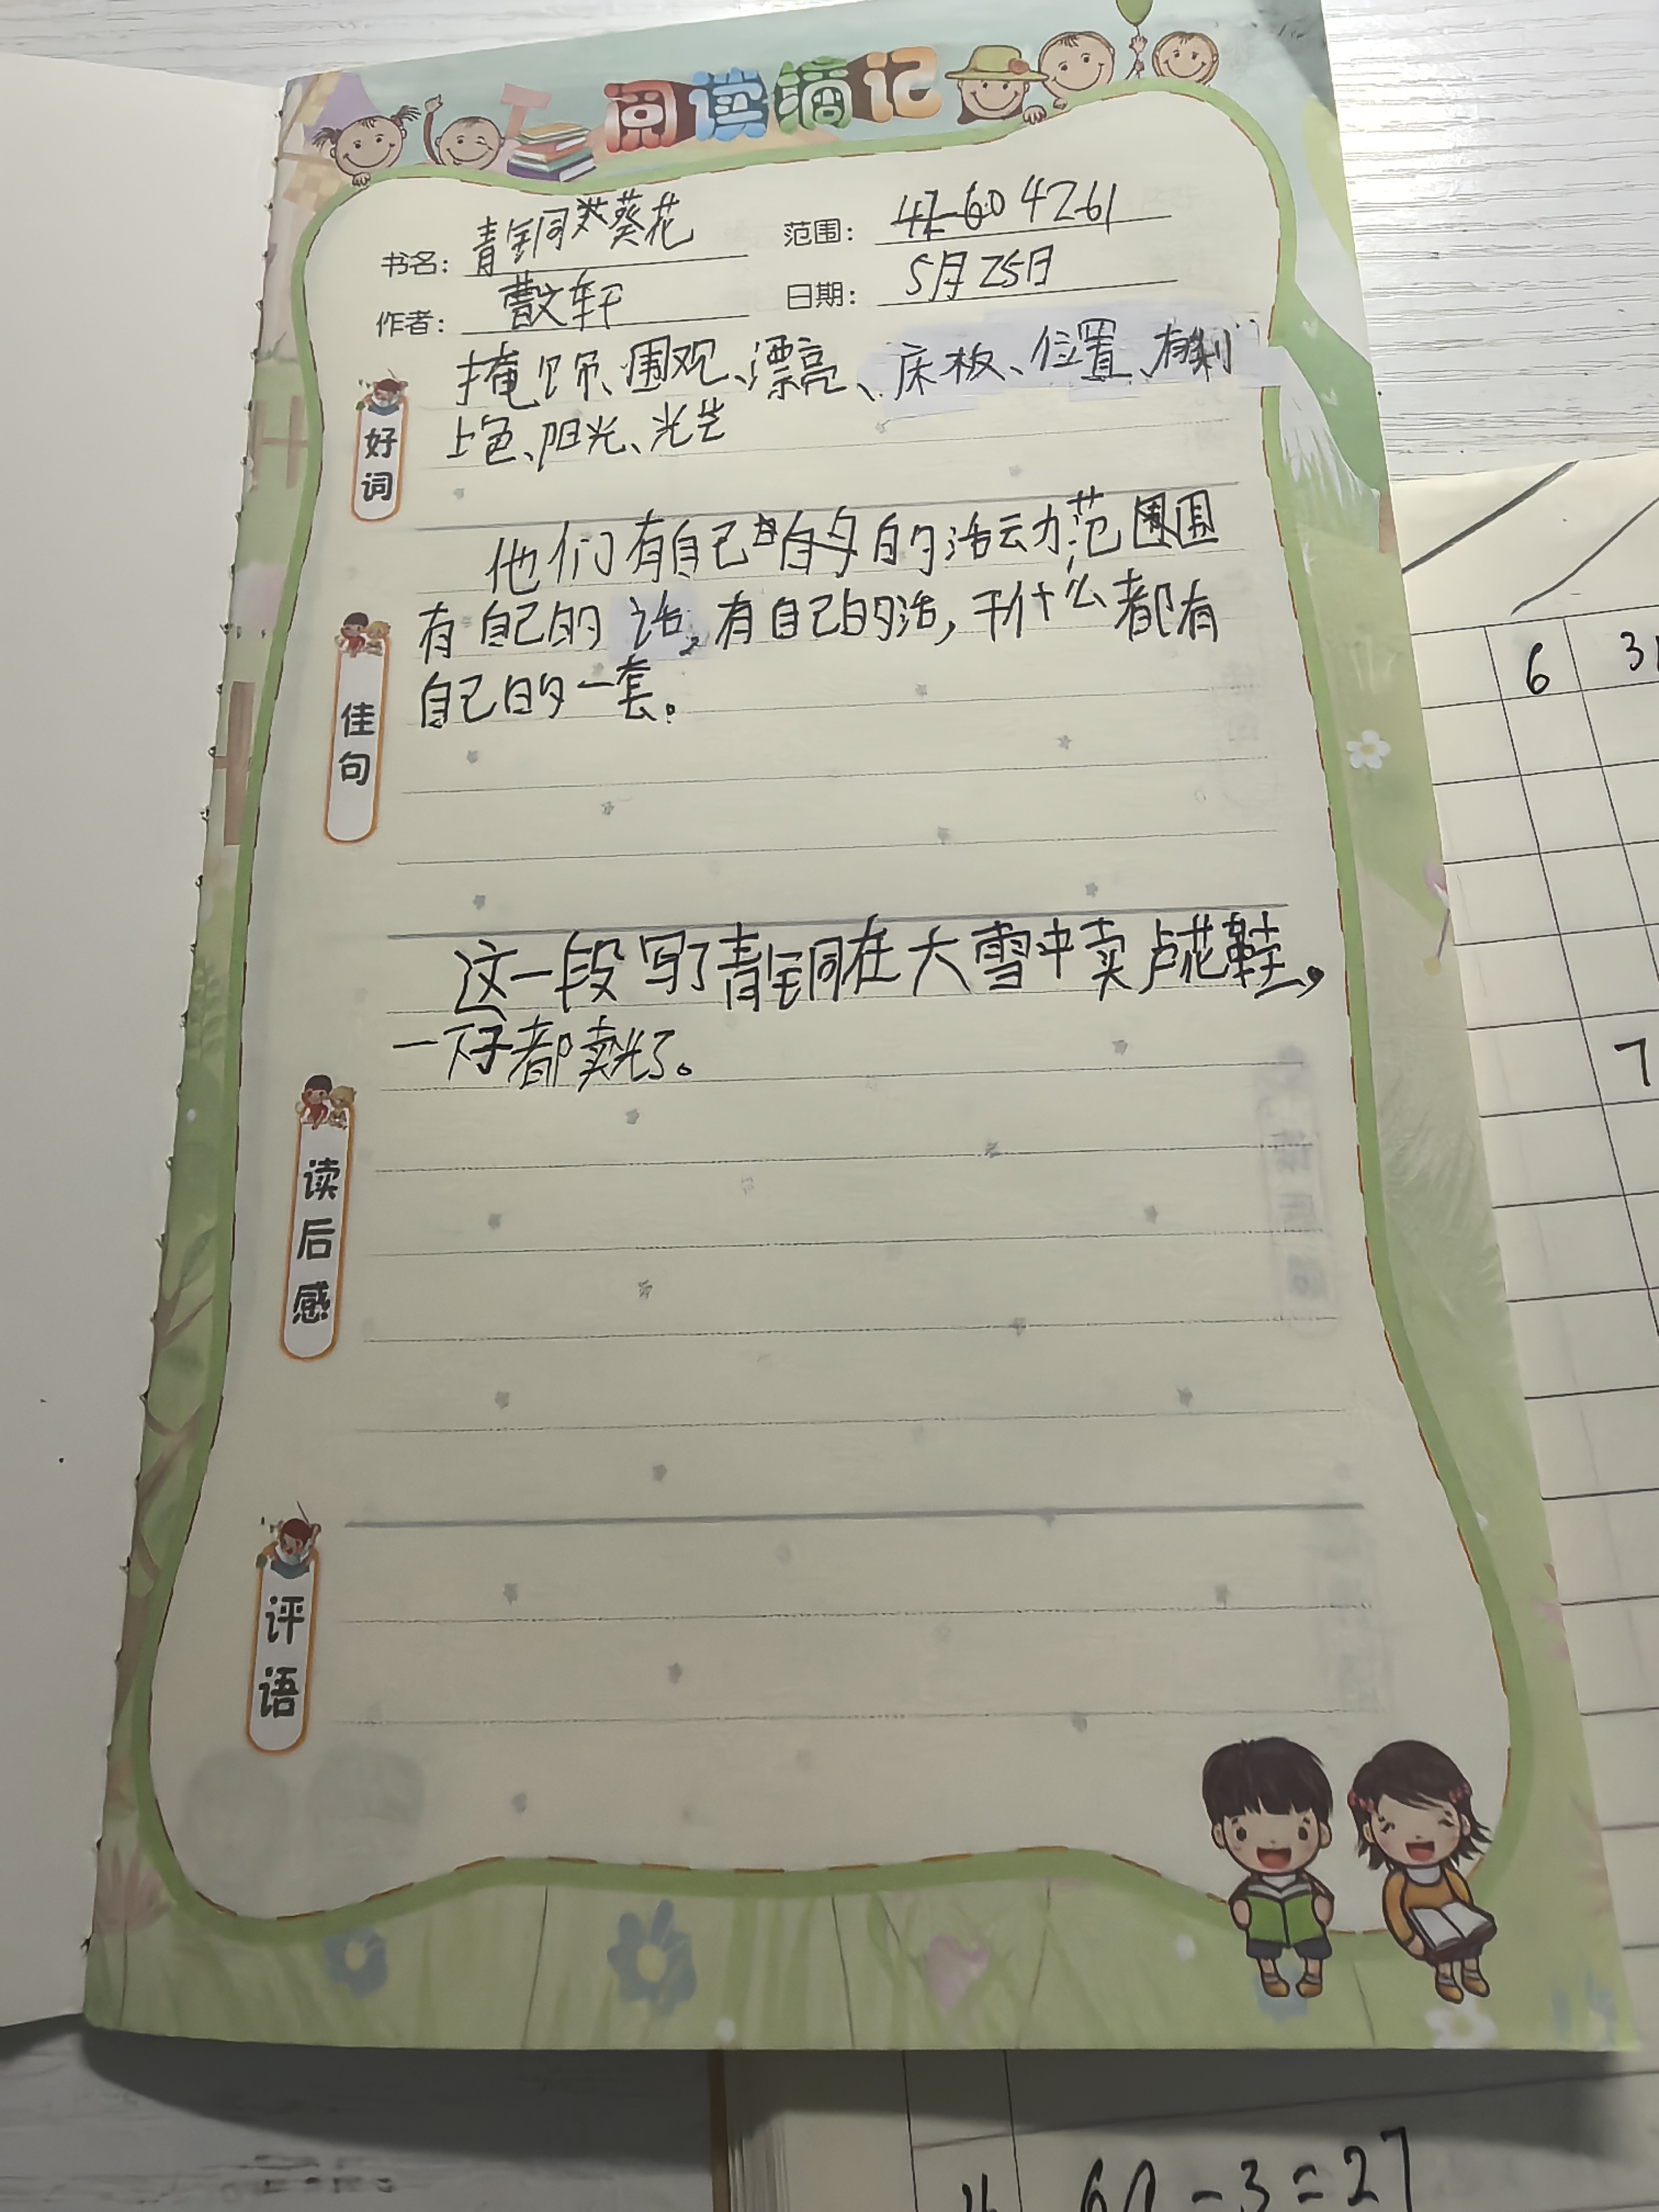 阅读摘记
书名：青铜葵花
范围：42-60 4261
作者：曹文轩
日期：5月25日
好词
掩饰、围观、漂亮、床板、位置、有利
上色、阳光、光芒
佳句
他们有自己的活动范围
有自己的话，有自己的活，干什么都有
自己的一套。
读后感
这一段写了青铜在大雪中卖芦花鞋，
一下子都卖光了。
评语
6
31
7
60-3=27